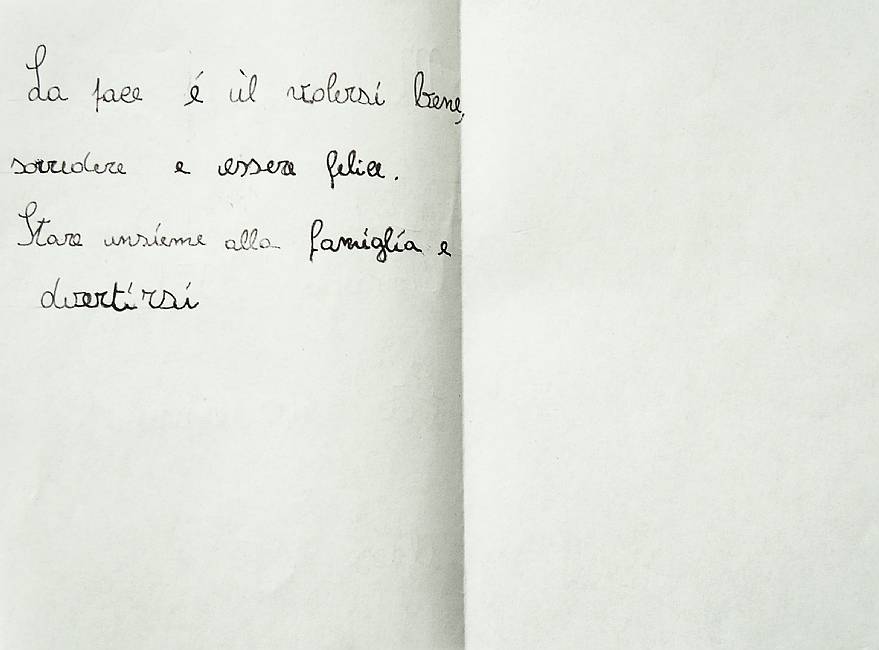 La pace é il volersi bene,
sorridere e essere felice.
Stare insieme alla famiglia e
divertirsi